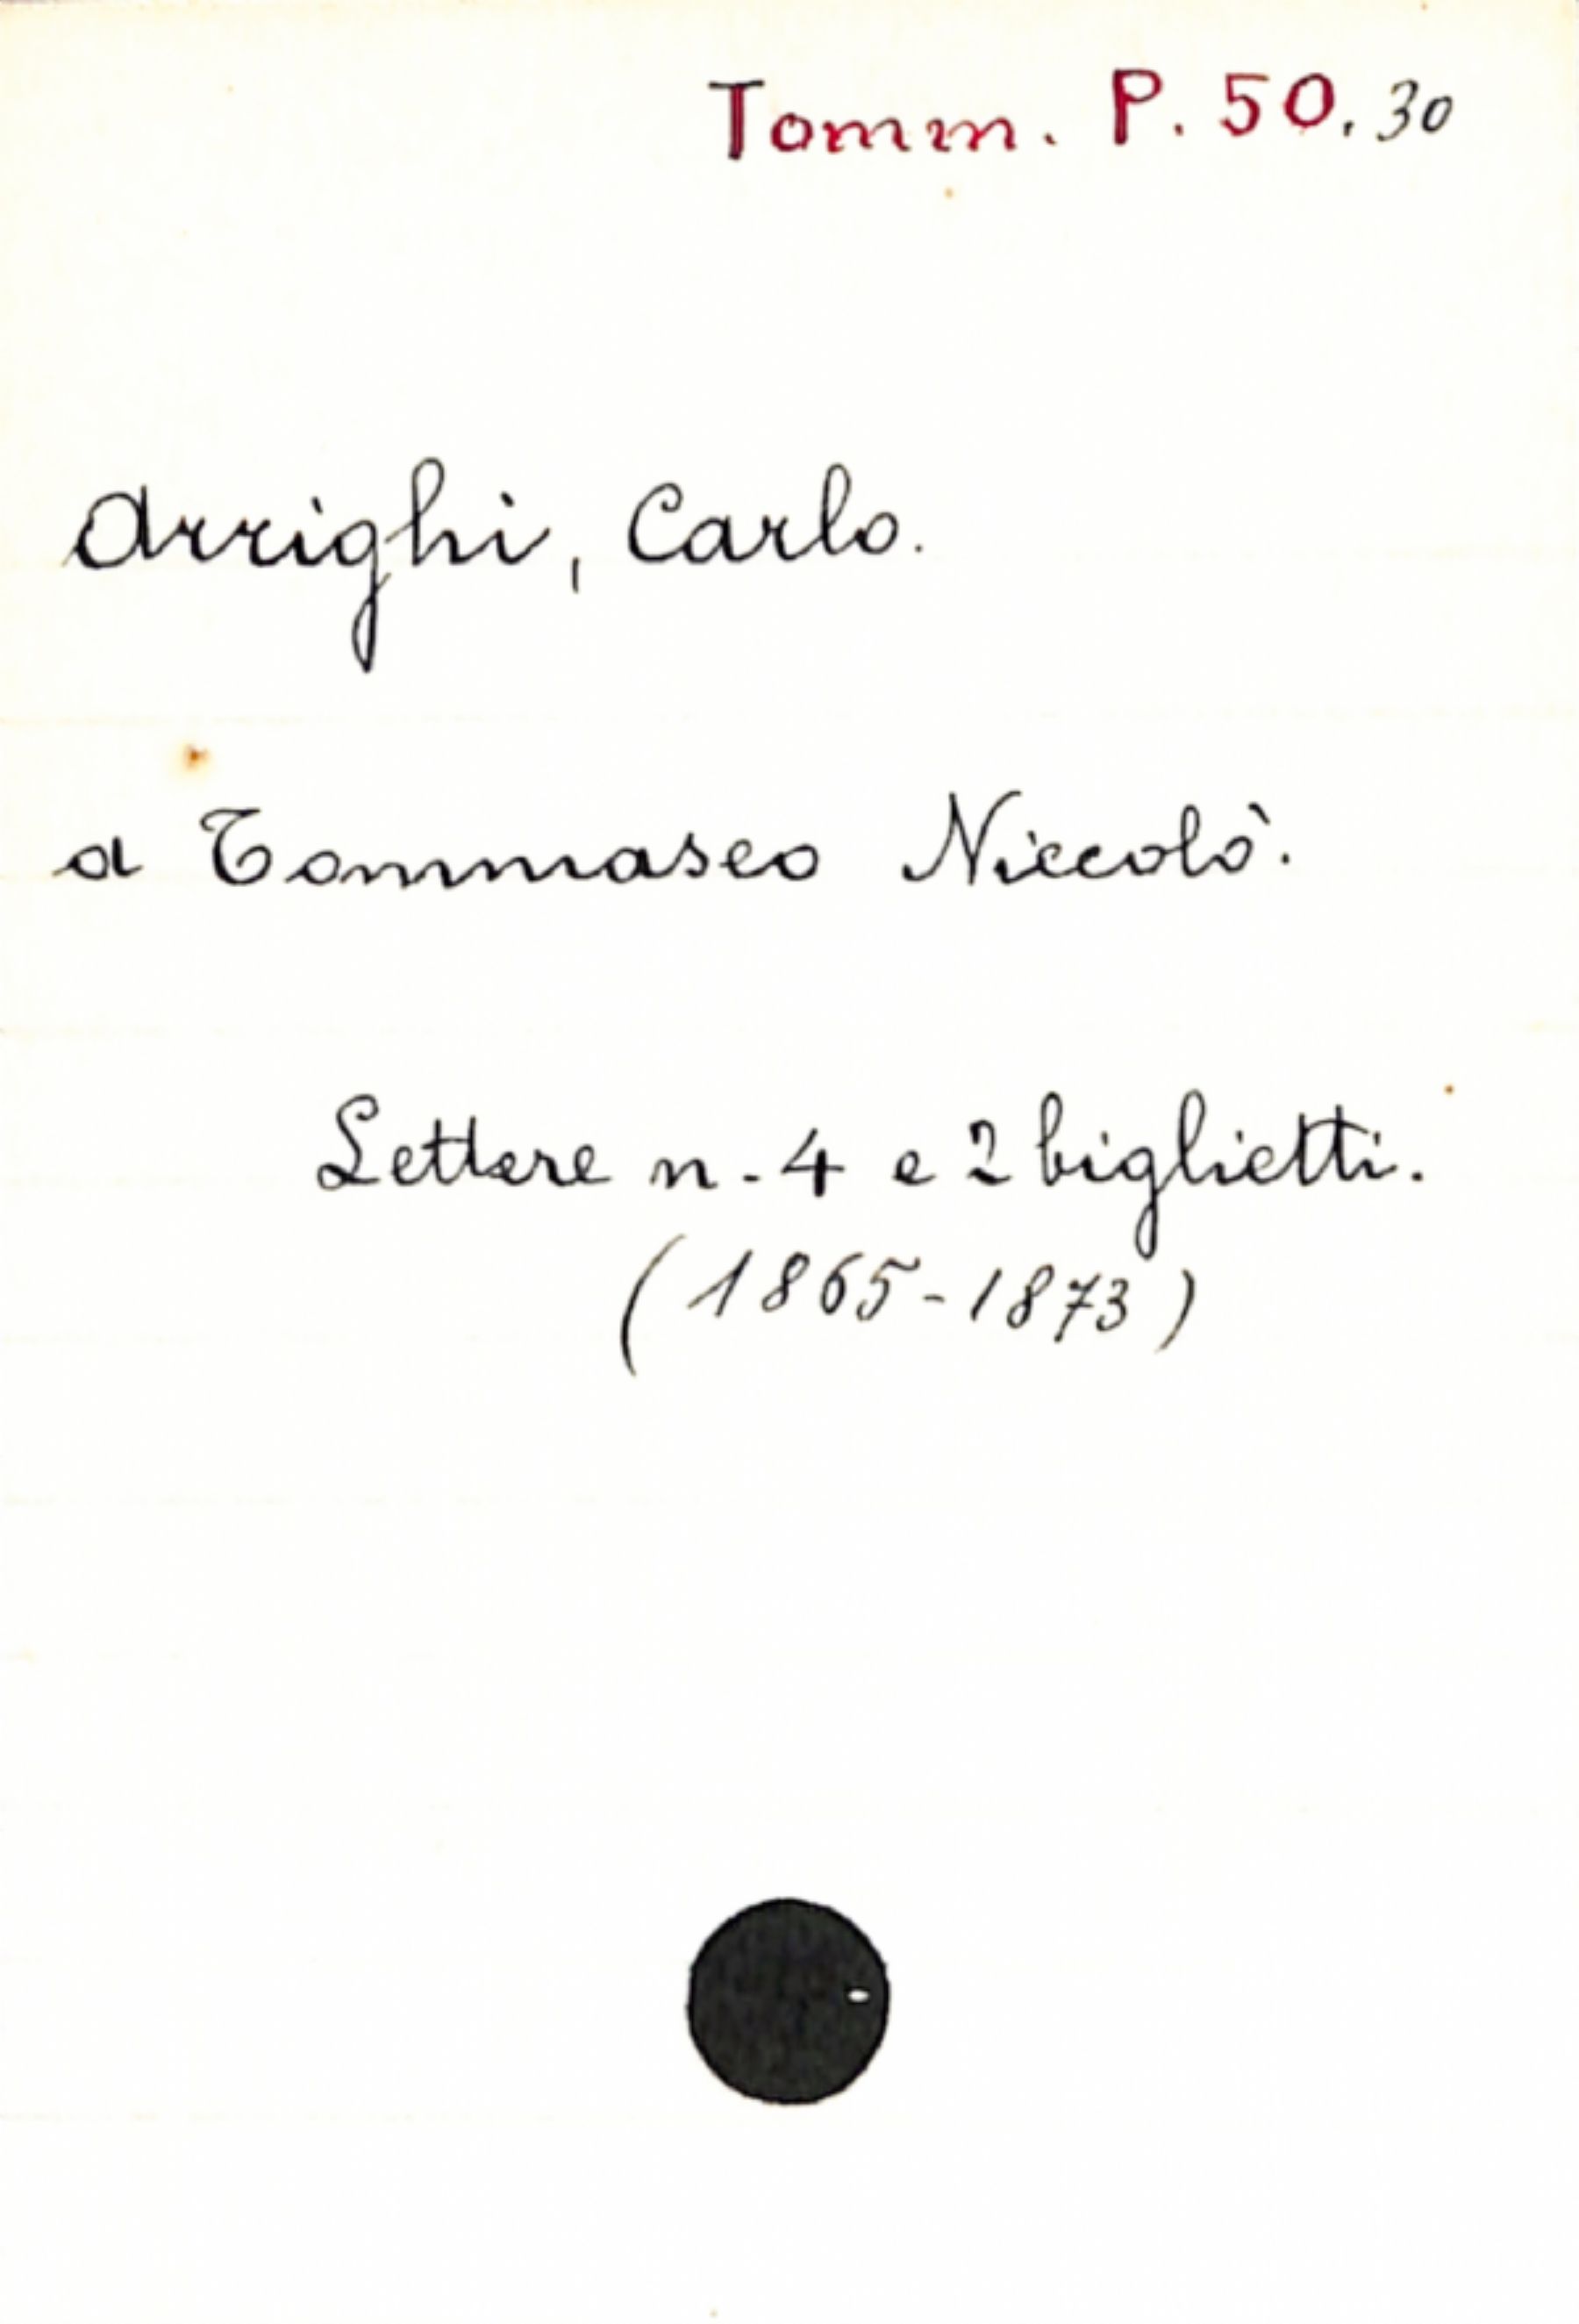 Tomm. P. 50. 30
Arrighi, Carlo.
a Tommaseo Niccolò.
Lettere n. 4 e 2 biglietti.
(1865-1873)